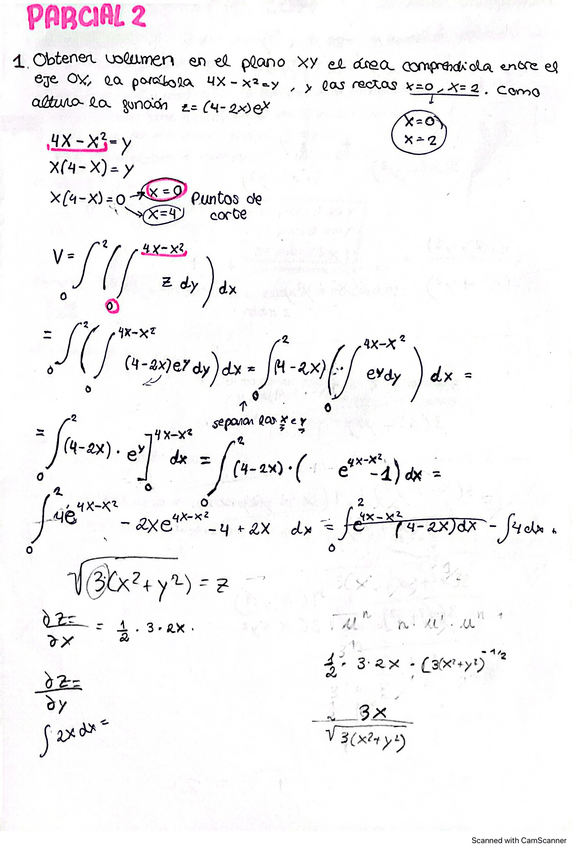 PARCIAL 2
1. Obtener volumen en el plano XY el área comprendida entre el
eje OX, la parábola 4X - X² = y, y las rectas x=0, x=2. Como
altura la función z = (4-2x)eʸ
x=0
x=2
4X - X² = y
X(4-X) = y
X(4-X) = 0 → x=0 Puntos de
x=4 corte
V = ∫₀² ( ∫₀^(4X-X²) z dy ) dx
= ∫₀² ( ∫₀^(4X-X²) (4-2x)eʸ dy ) dx = ∫₀² (4-2x) ( ∫₀^(4X-X²) eʸ dy ) dx =
↑
separan las x e y
= ∫₀² (4-2x) · eʸ ]₀^(4X-X²) dx = ∫₀² (4-2x) · ( e^(4X-X²) - 1) dx =
∫₀² 4e^(4X-X²) - 2Xe^(4X-X²) - 4 + 2X dx = ∫₀² e^(4X-X²) (4-2x) dx - ∫4 dx +
√3(x²+y²) = z
∂z/∂x = 1/2 · 3 · 2x ·
uⁿ n · u' · uⁿ
1/2 · 3 · 2x · (3(x²+y²)^(-1/2)
∂z=/∂y
3x/√3(x²+y²)
∫2x dx =
Scanned with CamScanner